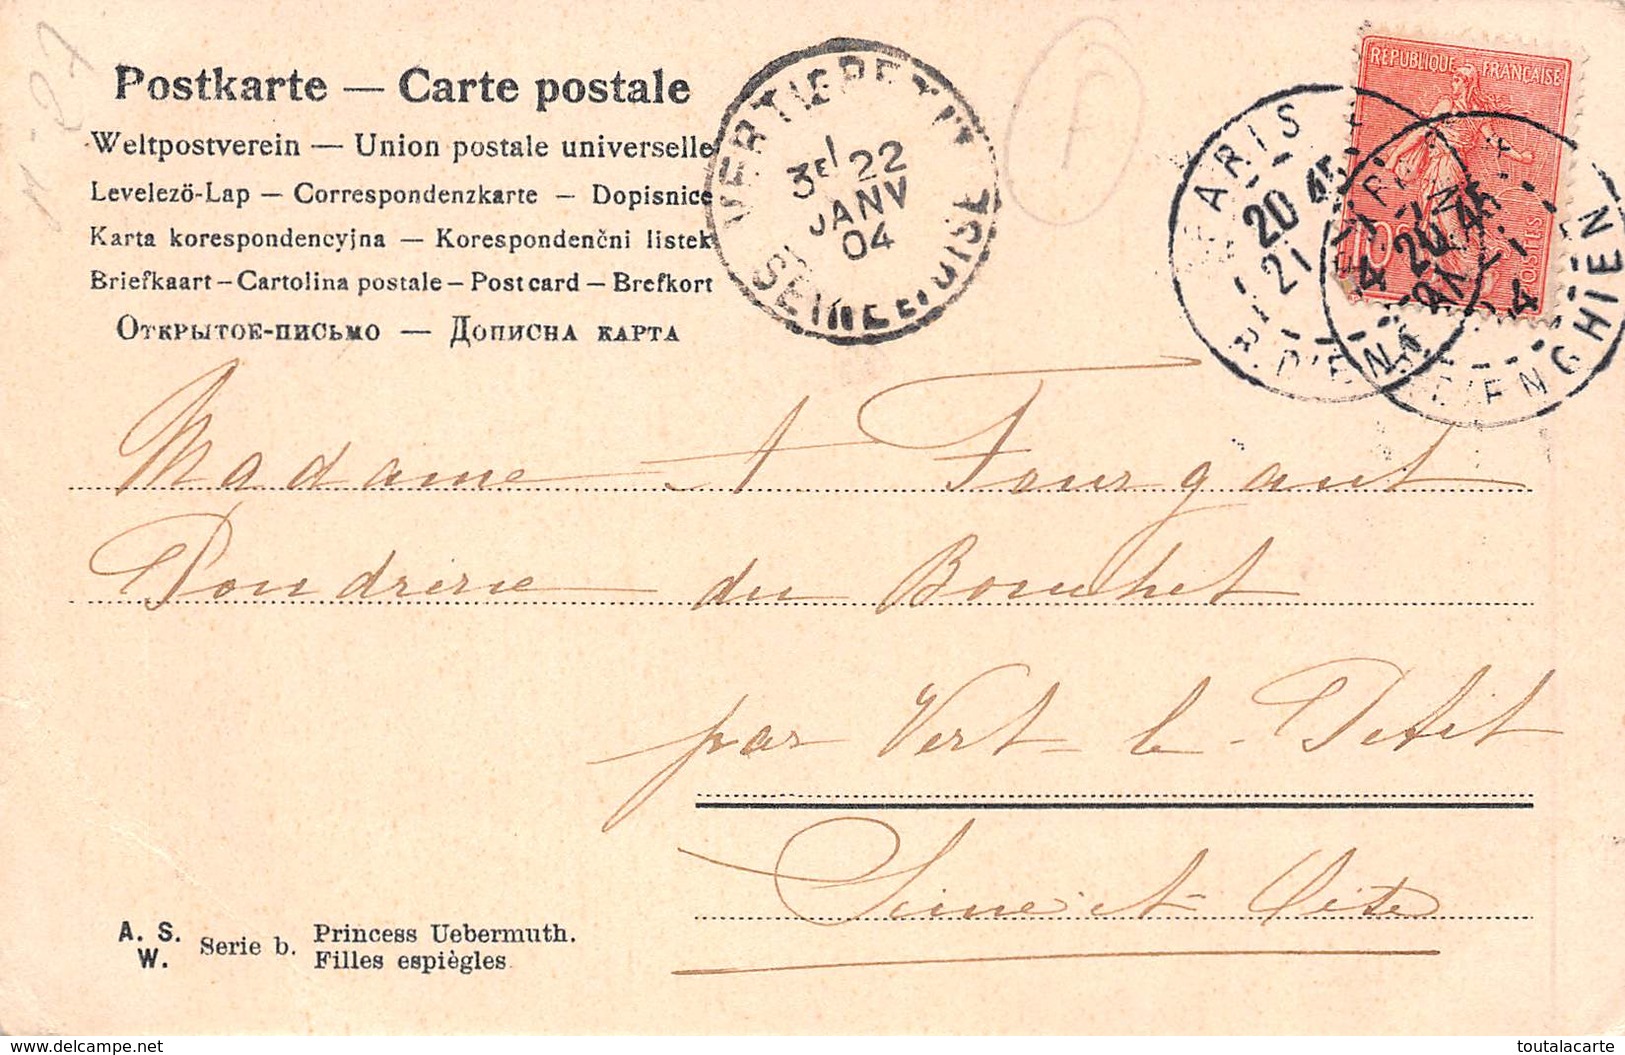 11-27
Postkarte — Carte postale
Weltpostverein — Union postale universelle
Levelező-Lap — Correspondenzkarte — Dopisnice
Karta korespondencyjna — Korespondenční listek
Briefkaart – Cartolina postale – Post card – Brefkort
Открытое-письмо — Дописна карта
VERT-LE-PETIT
1
3E 22
JANV
04
SEINE-ET-OISE
A
PARIS
20 45
21
R. D'ENGHIEN
PARIS
20 45
R. D'ENGHIEN
RÉPUBLIQUE FRANÇAISE
10
POSTES
Madame A Fourgant
Poudrerie du Bouchet
par Vert-le-Petit
Seine et Oise
A. S.
W.
Serie b.
Princess Uebermuth.
Filles espiègles
delcampe.net
toutalacarte